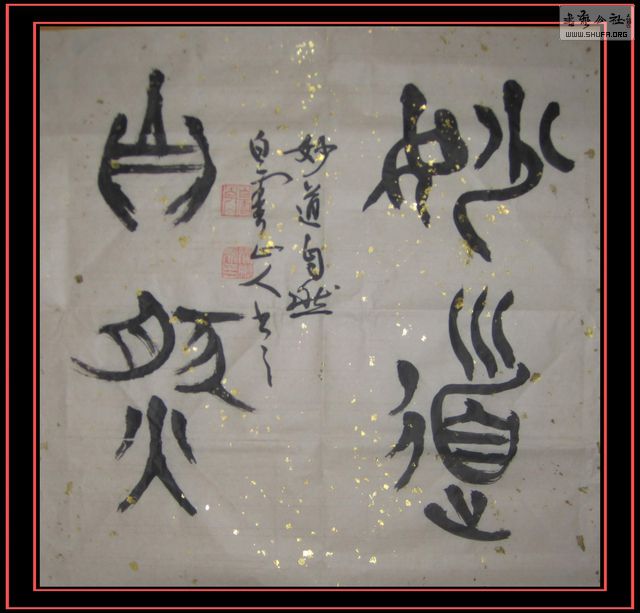 妙道
自然
妙道自然
白雲山人书之
书艺公社
WWW.SHUFA.ORG